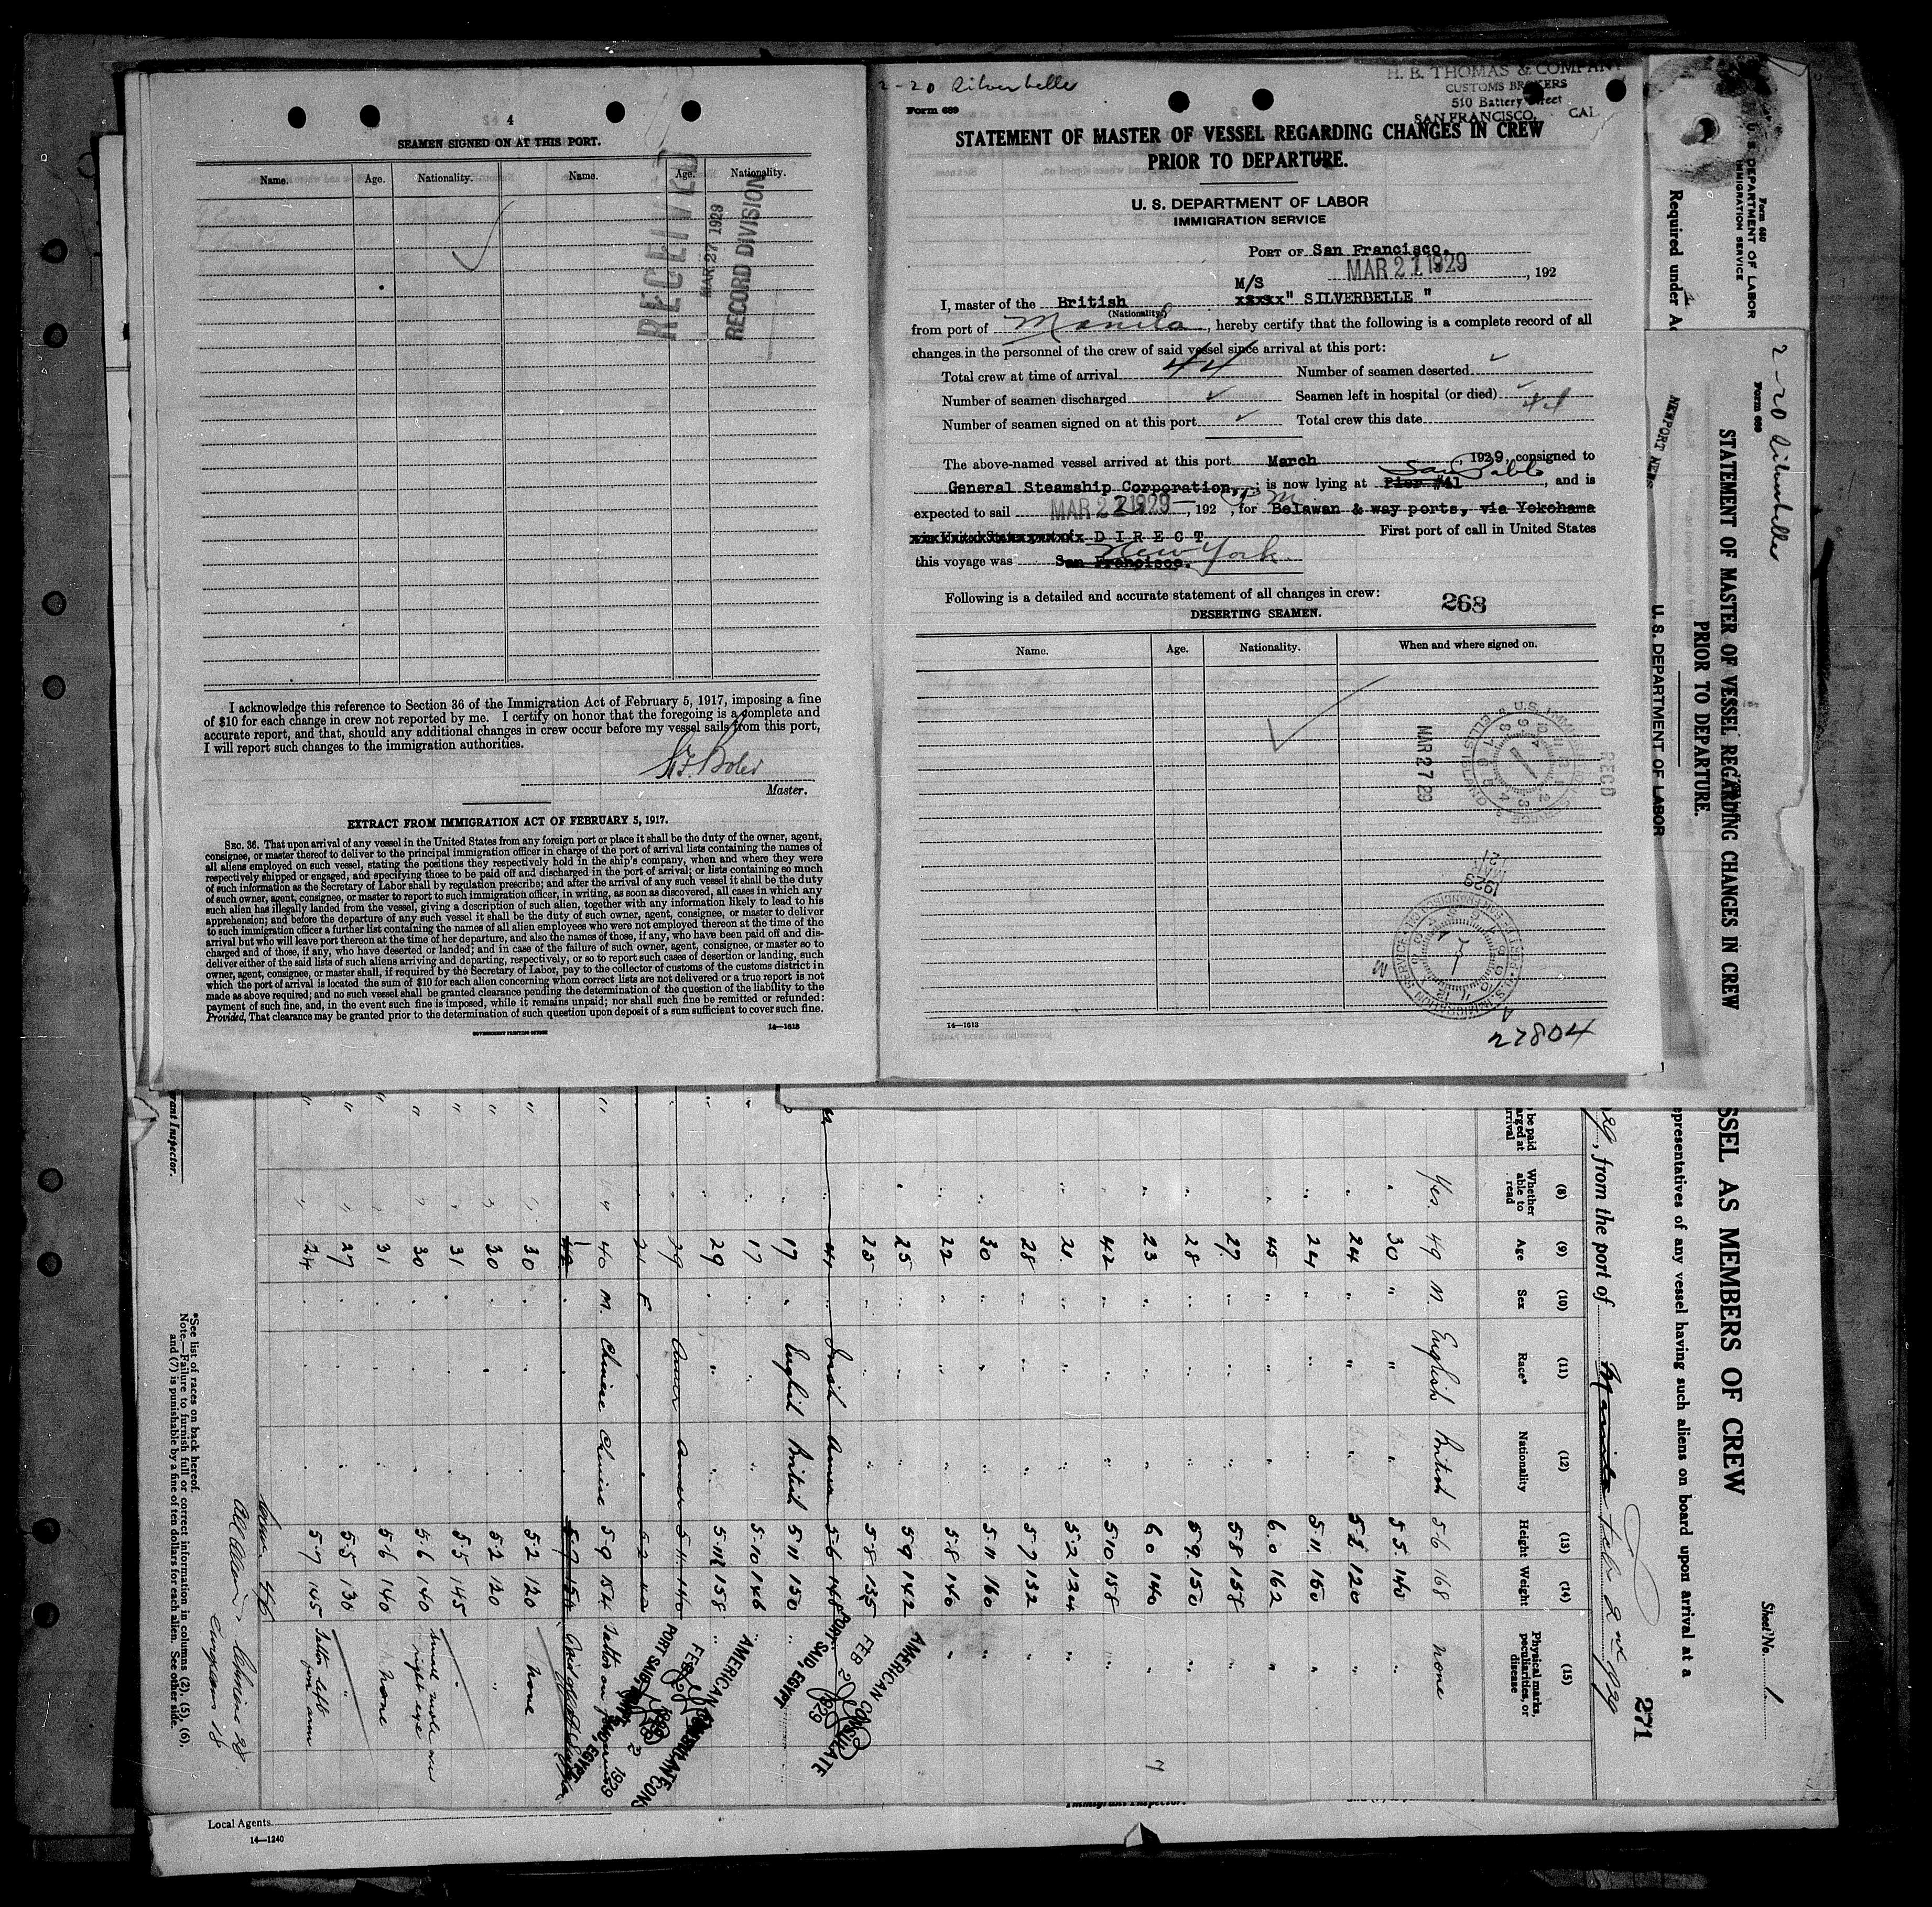 4
SEAMEN SIGNED ON AT THIS PORT.
Name. Age. Nationality. Name. Age. Nationality.
RECEIVED
MAR 27 1929
RECORD DIVISION
I acknowledge this reference to Section 36 of the Immigration Act of February 5, 1917, imposing a fine
of $10 for each change in crew not reported by me. I certify on honor that the foregoing is a complete and
accurate report, and that, should any additional changes in crew occur before my vessel sails from this port,
I will report such changes to the immigration authorities.
Master.
EXTRACT FROM IMMIGRATION ACT OF FEBRUARY 5, 1917.
SEC. 36. That upon arrival of any vessel in the United States from any foreign port or place it shall be the duty of the owner, agent,
consignee, or master thereof to deliver to the principal immigration officer in charge of the port of arrival lists containing the names of
all aliens employed on such vessel, stating the positions they respectively hold in the ship's company, when and where they were
respectively shipped or engaged, and specifying those to be paid off and discharged in the port of arrival; or lists containing so much
of such information as the Secretary of Labor shall by regulation prescribe; and after the arrival of any such vessel it shall be the duty
of such owner, agent, consignee, or master to report to such immigration officer, in writing, as soon as discovered, all cases in which any
such alien has illegally landed from the vessel, giving a description of such alien, together with any information likely to lead to his
apprehension; and before the departure of any such vessel it shall be the duty of such owner, agent, consignee, or master to deliver
to such immigration officer a further list containing the names of all alien employees who were not employed thereon at the time of the
arrival but who will leave port thereon at the time of her departure, and also the names of those, if any, who have been paid off and dis-
charged and of those, if any, who have deserted or landed; and in case of the failure of such owner, agent, consignee, or master so to
deliver either of the said lists of such aliens arriving and departing, respectively, or so to report such cases of desertion or landing, such
owner, agent, consignee, or master shall, if required by the Secretary of Labor, pay to the collector of customs of the customs district in
which the port of arrival is located the sum of $10 for each alien concerning whom correct lists are not delivered or a true report is not
made as above required; and no such vessel shall be granted clearance pending the determination of the question of the liability to the
payment of such fine, and, in the event such fine is imposed, while it remains unpaid; nor shall such fine be remitted or refunded:
Provided, That clearance may be granted prior to the determination of such question upon deposit of a sum sufficient to cover such fine.
GOVERNMENT PRINTING OFFICE
14—1613
2-20 Silverbelle
H. B. THOMAS & COMPANY
CUSTOMS BROKERS
510 Battery Street
SAN FRANCISCO, CAL.
Form 689
STATEMENT OF MASTER OF VESSEL REGARDING CHANGES IN CREW
PRIOR TO DEPARTURE.
U. S. DEPARTMENT OF LABOR
IMMIGRATION SERVICE
PORT OF San Francisco.
MAR 27 1929, 192
M/S
I, master of the British xxxxx" SILVERBELLE "
(Nationality)
from port of Manila, hereby certify that the following is a complete record of all
changes in the personnel of the crew of said vessel since arrival at this port:
Total crew at time of arrival 44 Number of seamen deserted
Number of seamen discharged Seamen left in hospital (or died)
Number of seamen signed on at this port Total crew this date 44
The above-named vessel arrived at this port March, 1929, consigned to
San Pablo
General Steamship Corporation, ; is now lying at Pier #41, and is
expected to sail MAR 27 1929, 192, for Belawan & way ports, via Yokohama
DIRECT First port of call in United States
New York
this voyage was San Francisco.
Following is a detailed and accurate statement of all changes in crew:
268
DESERTING SEAMEN.
Name. Age. Nationality. When and where signed on.
MAR 27 29
REC'D
1929
14—1613
22804
Form 680
U. S. DEPARTMENT OF LABOR
IMMIGRATION SERVICE
Required under A
2-20 Silverbelle
Form 689
STATEMENT OF MASTER OF VESSEL REGARDING CHANGES IN CREW
PRIOR TO DEPARTURE.
U. S. DEPARTMENT OF LABOR
NEWPORT NEWS
Sheet No. 1
271
SSEL AS MEMBERS OF CREW
epresentatives of any vessel having such aliens on board upon arrival at a
29, from the port of Manila
(8) (9) (10) (11) (12) (13) (14) (15)
Whether able to read Age Sex Race* Nationality Height Weight Physical marks, peculiarities, or disease
Yes 49 M. English British 5-6 168 none
" 30 " " " 5-5 140 "
" 24 " " " 120 "
" 24 " " " 5-11 150 "
" 45 " " " 6-0 162 "
" 27 " " " 5-8 158 "
" 28 " " " 5-9 150 "
" 23 " " " 6-0 140 "
" 42 " " " 5-10 158 "
" 21 " " " 5-2 124 "
" 28 " " " 5-7 132 "
" 30 " " " 5-11 160 "
" 22 " " " 5-8 140 "
" 25 " " " 5-9 142
" 25 " " " 5-8 135
" Irish 5-6 148
" 17 " English British 5-11 150 "
" 17 " " " 5-10 146 "
" 29 " " " 5-11 158 "
" 29 Amer Amer 5-11 140
21 F 5-2
40 M. Chinese Chinese 5-9 154
" 30 " " " 5-2 120 none
" 30 " " " 5-2 120 "
" 31 " " " 5-5 145 "
" 30 " " " 5-6 140 small mole over right eye
" 31 " " " 5-6 140 none
" 27 " " " 5-5 130 "
" 24 " " " 5-7 145 Tattoo left fore arm
AMERICAN CONSULATE
FEB 2 1929
PORT SAID, EGYPT
Chinese 28
Europeans 18
*See list of races on back hereof.
Note.—Failure to furnish full or correct information in columns (2), (5), (6),
and (7) is punishable by a fine of ten dollars for each alien. See other side.
rant Inspector.
Immigrant Inspector.
Local Agents
14—1240